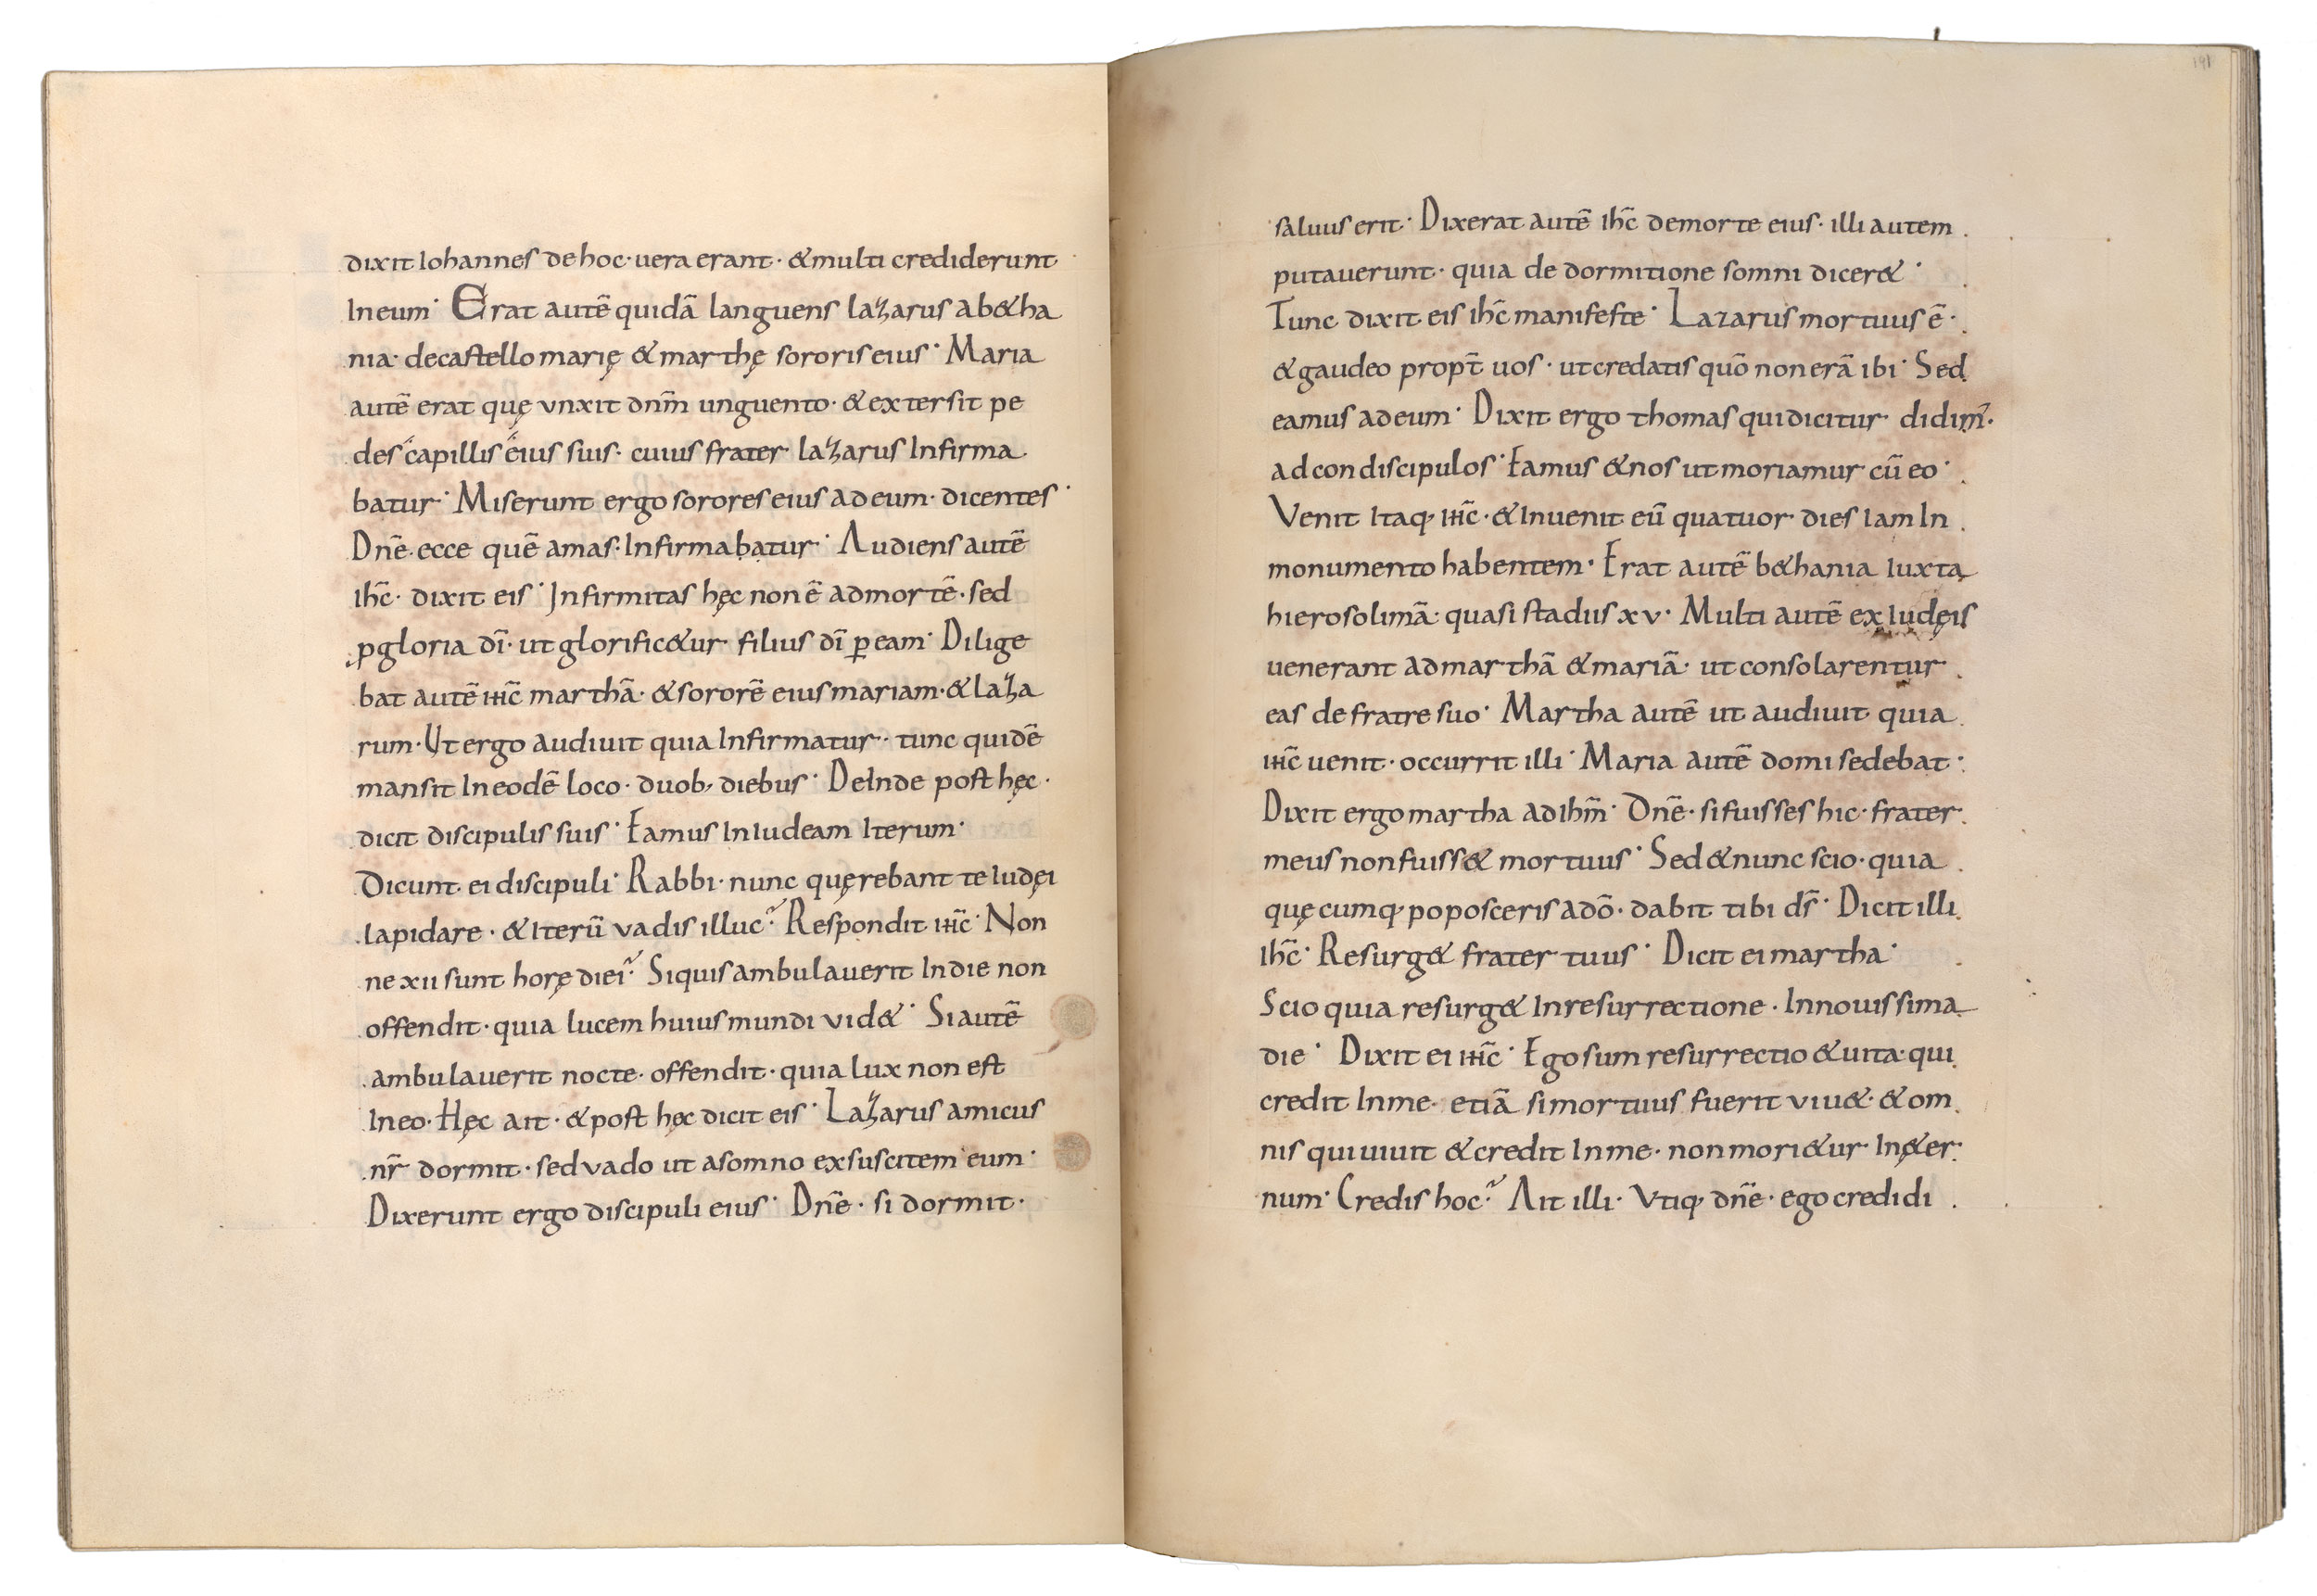 dixit Iohannes de hoc· uera erant· & multi crediderunt
In eum· Erat autē quidā languens lazarus a b&ha
nia· de castello marię & marthę sororis eius· Maria
autē erat quę vnxit dnm̄ unguento· & extersit pe
des capillis eius suis· cuius frater lazarus Infirma
batur· Miserunt ergo sorores eius ad eum· dicentes·
Dnē· ecce quē amas· Infirmabatur· Audiens autē
ihc̄· dixit eis· Infirmitas hęc non ē ad mortē· sed
p gloria dī· ut glorific&ur filius dī ꝑ eam· Dilige
bat autē ihc̄ marthā· & sororē eius mariam· & laza
rum· Ut ergo audiuit quia Infirmatur· tunc quidē
mansit In eodē loco· duob; diebus· DeInde post hęc·
dicit discipulis suis· Eamus In Iudeam Iterum·
Dicunt ei discipuli· Rabbi· nunc quęrebant te Iudęi
lapidare· & Iterū vadis illuc? Respondit ihc̄· Non
ne xii sunt horę diei? Siquis ambulauerit In die non
offendit· quia lucem huius mundi vid&· Si autē
ambulauerit nocte· offendit· quia lux non est
In eo· Hęc ait· & post hęc dicit eis· Lazarus amicus
nr̄ dormit· sed vado ut a somno exsuscitem eum·
Dixerunt ergo discipuli eius· Dnē· si dormit·
191
saluus erit· Dixerat autē ihc̄ de morte eius· illi autem
putauerunt· quia de dormitione somni dicer&·
Tunc dixit eis ihc̄ manifeste· Lazarus mortuus ē·
& gaudeo propt̄ uos· ut credatis quō non erā ibi· Sed
eamus ad eum· Dixit ergo thomas qui dicitur didim̄·
ad condiscipulos· Eamus & nos ut moriamur cū eo·
Venit Itaq; ihc̄· & Inuenit eū quatuor dies Iam In
monumento habentem· Erat autē b&hania Iuxta
hierosolimā· quasi stadiis xv· Multi autē ex Iudęis
uenerant ad marthā & mariā· ut consolarentur
eas de fratre suo· Martha autē ut audiuit quia
ihc̄ uenit· occurrit illi· Maria autē domi sedebat·
Dixit ergo martha ad Ihm̄· Dnē· si fuisses hic· frater
meus non fuiss& mortuus· Sed & nunc scio· quia
quęcumq; poposceris a dō· dabit tibi ds̄· Dicit illi
Ihc̄· Resurg& frater tuus· Dicit ei martha·
Scio quia resurg& In resurrectione· In nouissima
die· Dixit ei ihc̄· Ego sum resurrectio & uita· qui
credit In me· etiā si mortuus fuerit viu&· & om
nis qui uiuit & credit In me· non mori&ur In &er
num· Credis hoc? Ait illi· Vtiq; dnē· ego credidi